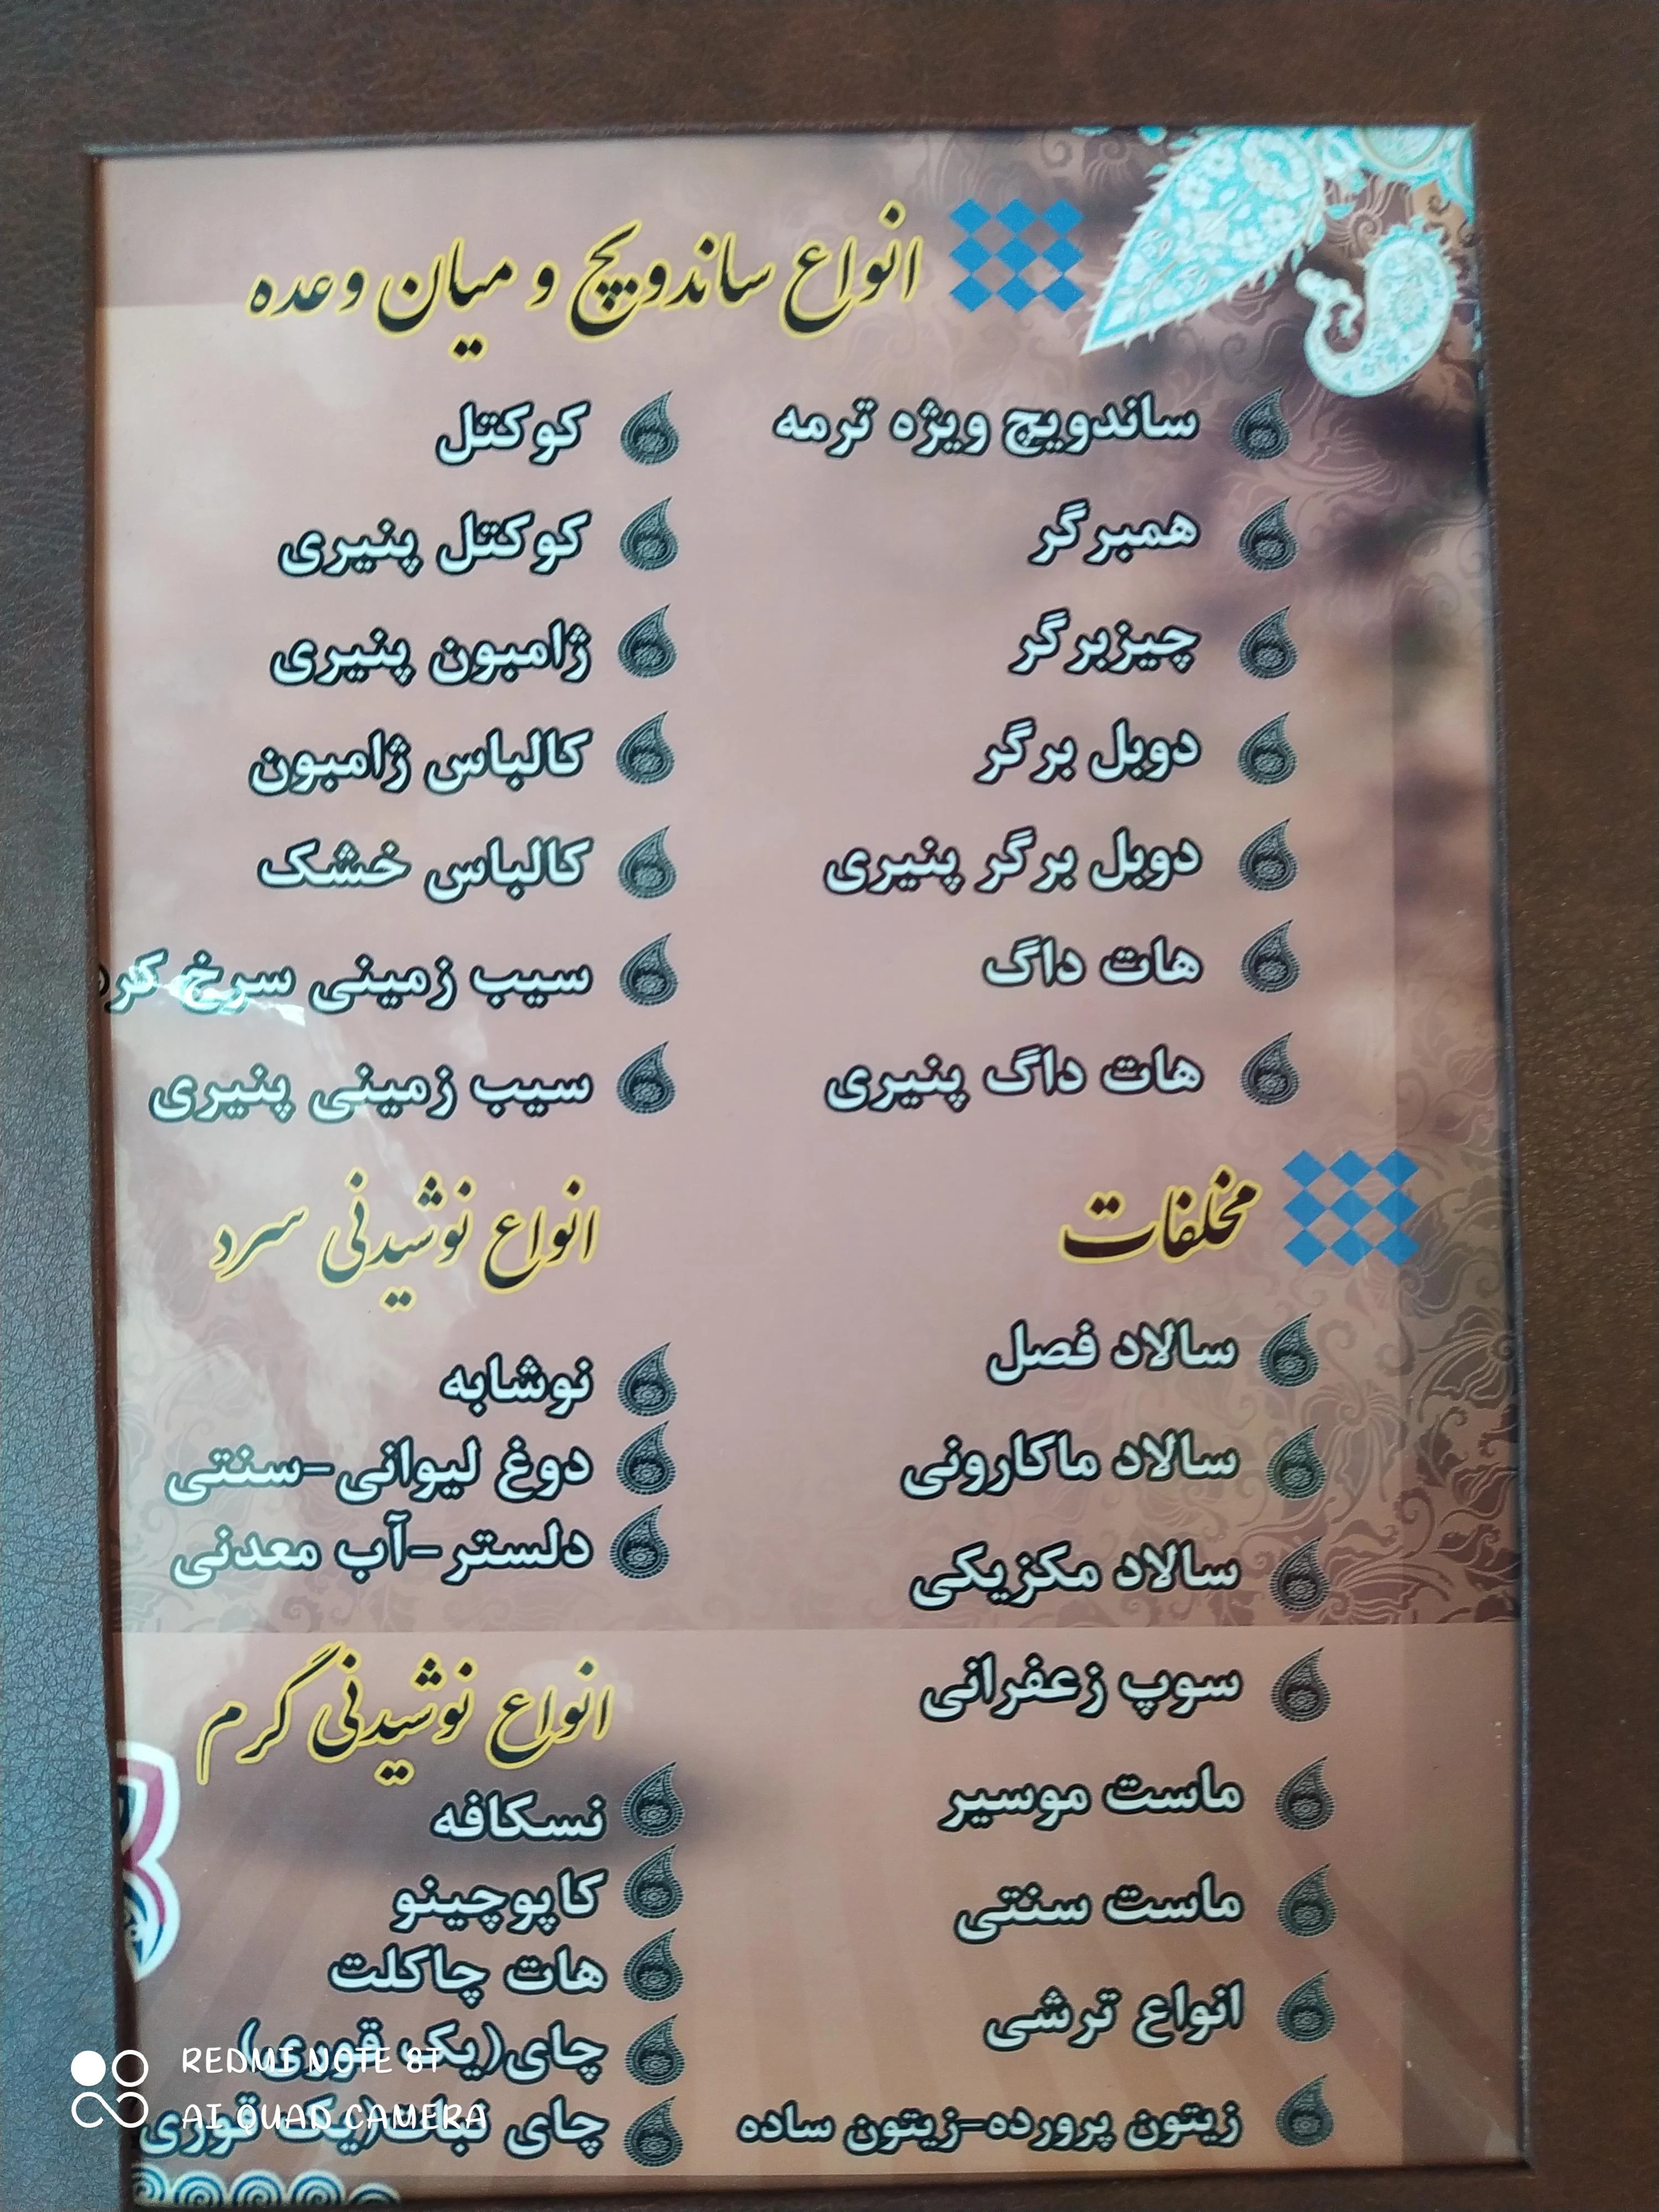 انواع ساندویچ و میان وعده
ساندویچ ویژه ترمه
همبرگر
چیزبرگر
دوبل برگر
دوبل برگر پنیری
هات داگ
هات داگ پنیری
کوکتل
کوکتل پنیری
ژامبون پنیری
کالباس ژامبون
کالباس خشک
سیب زمینی سرخ کرد
سیب زمینی پنیری
مخلفات
سالاد فصل
سالاد ماکارونی
سالاد مکزیکی
سوپ زعفرانی
ماست موسیر
ماست سنتی
انواع ترشی
زیتون پرورده-زیتون ساده
انواع نوشیدنی سرد
نوشابه
دوغ لیوانی-سنتی
دلستر-آب معدنی
انواع نوشیدنی گرم
نسکافه
کاپوچینو
هات چاکلت
چای(یک قوری)
چای نبات(یک قوری
REDMI NOTE 8T
AI QUAD CAMERA